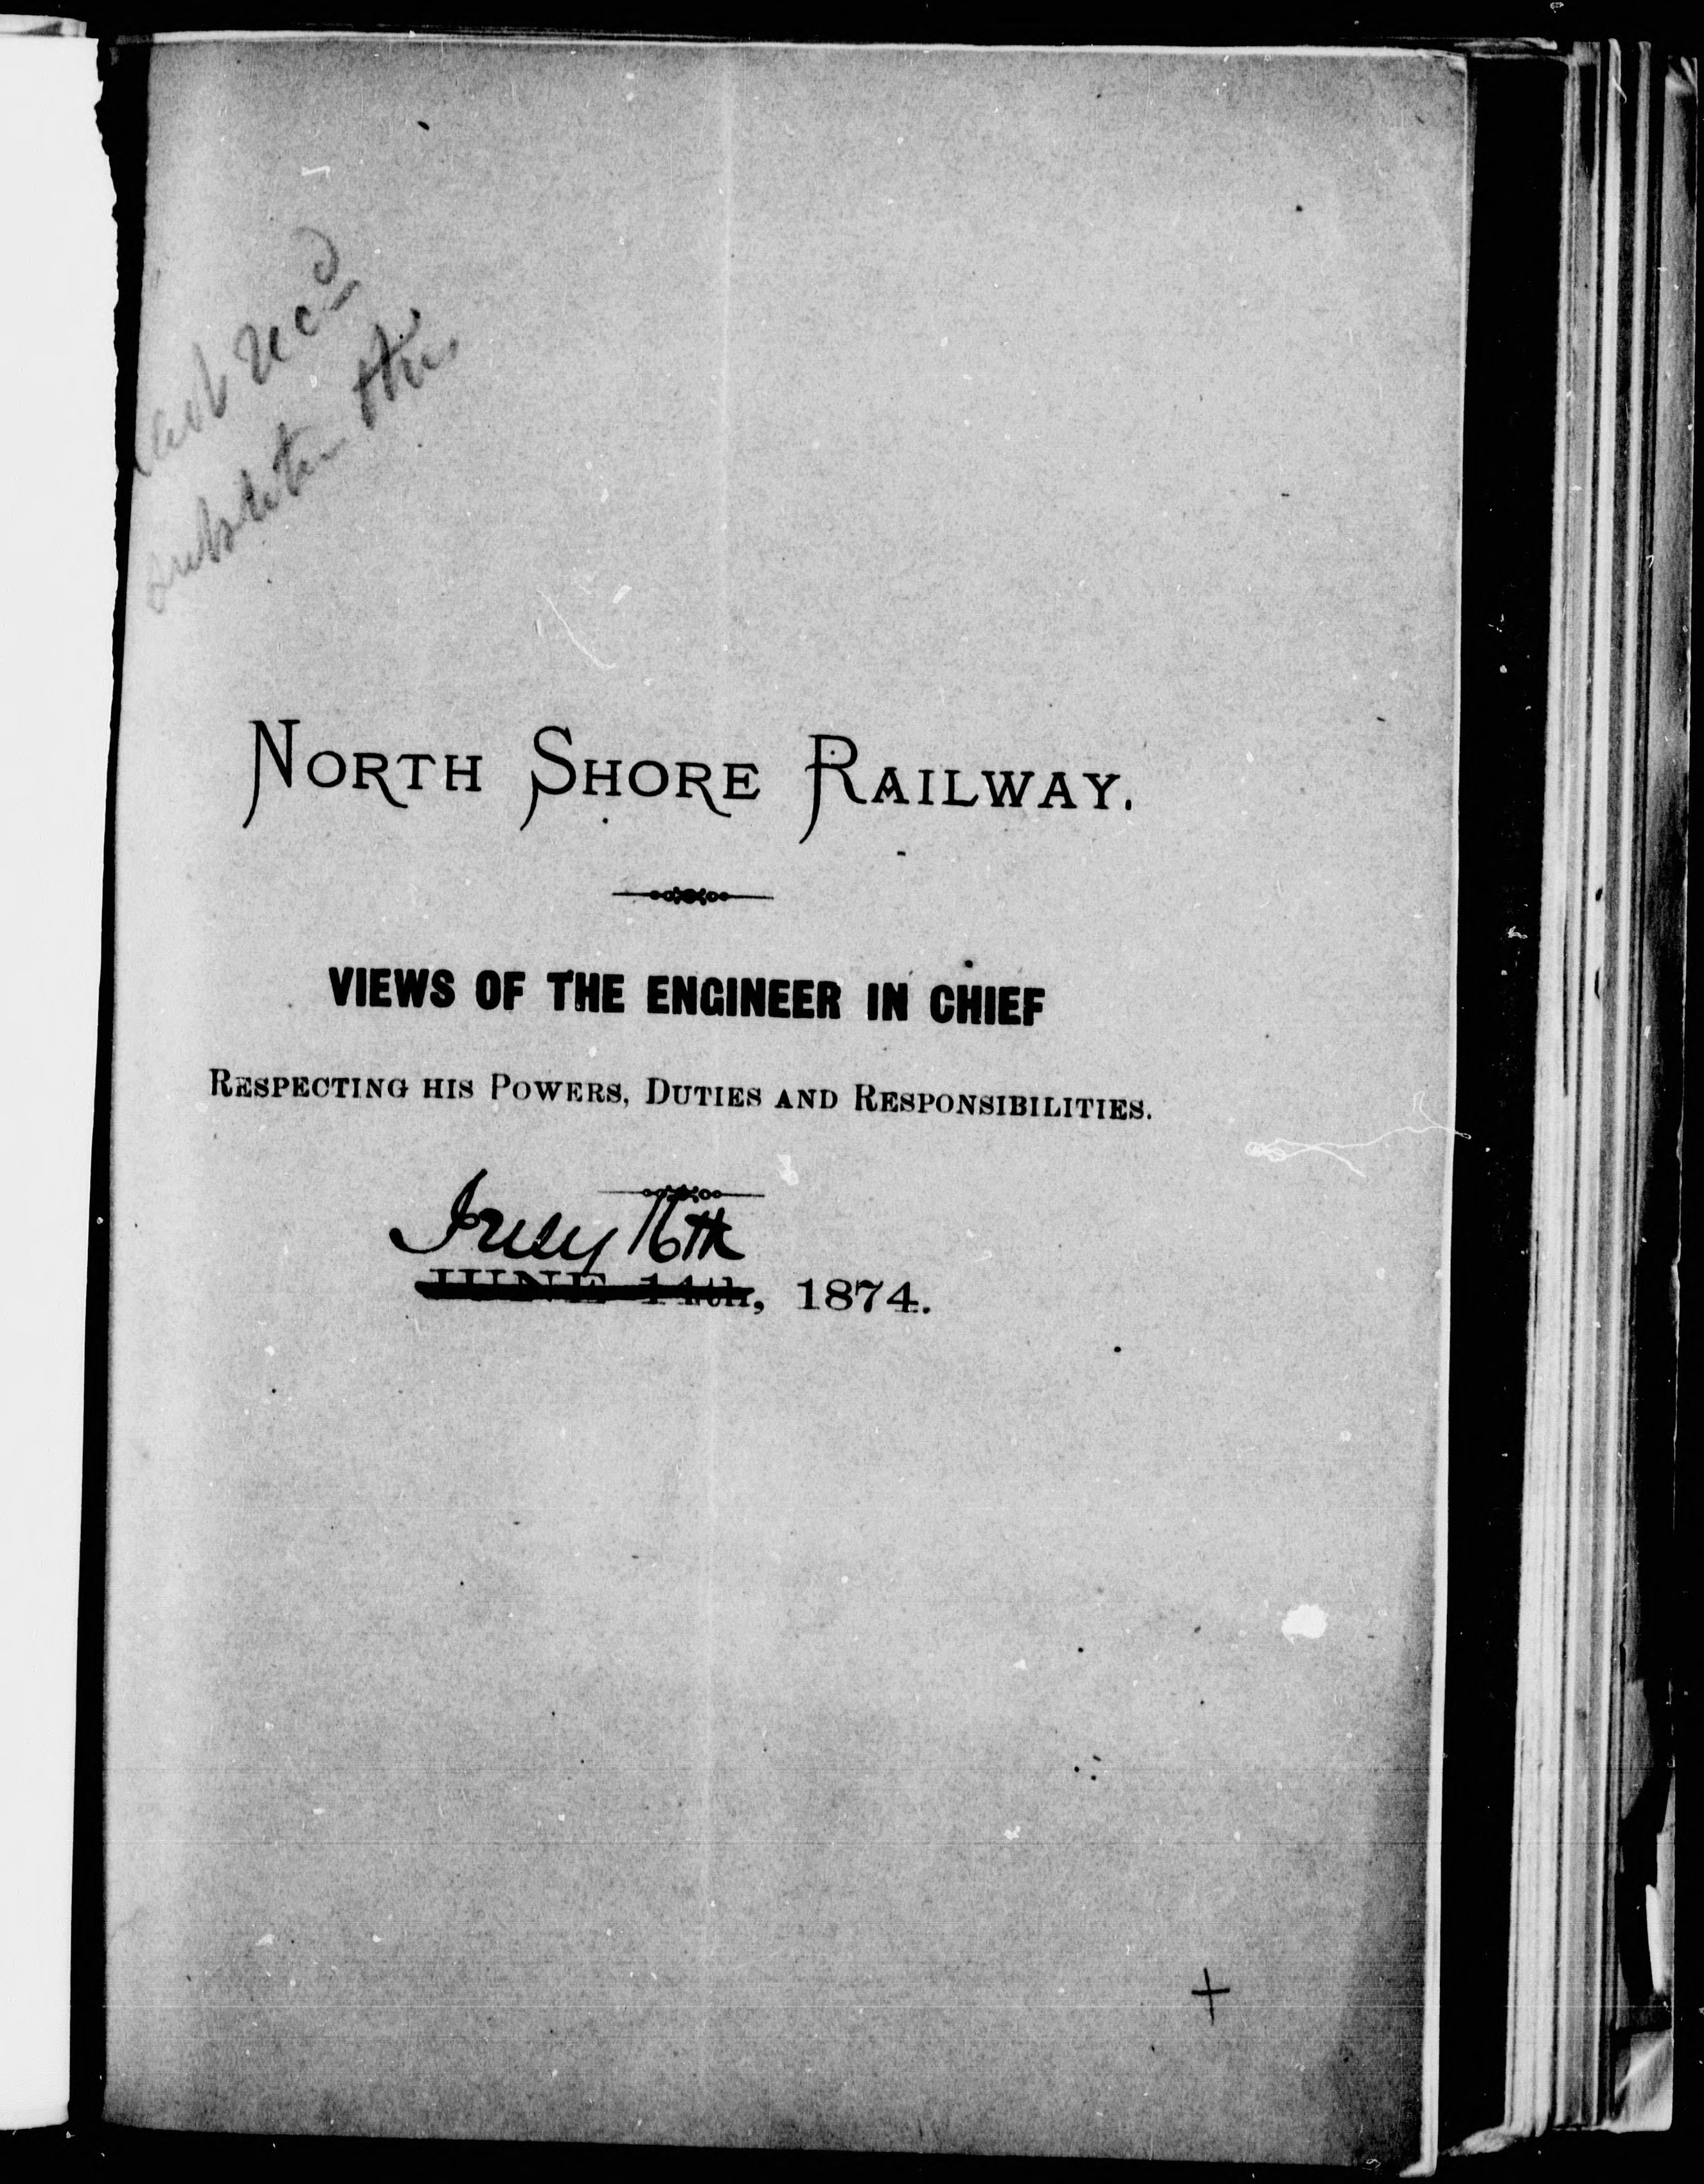 rec'd
this
NORTH SHORE RAILWAY.
VIEWS OF THE ENGINEER IN CHIEF
RESPECTING HIS POWERS, DUTIES AND RESPONSIBILITIES.
July 16th
JUNE 14th, 1874.